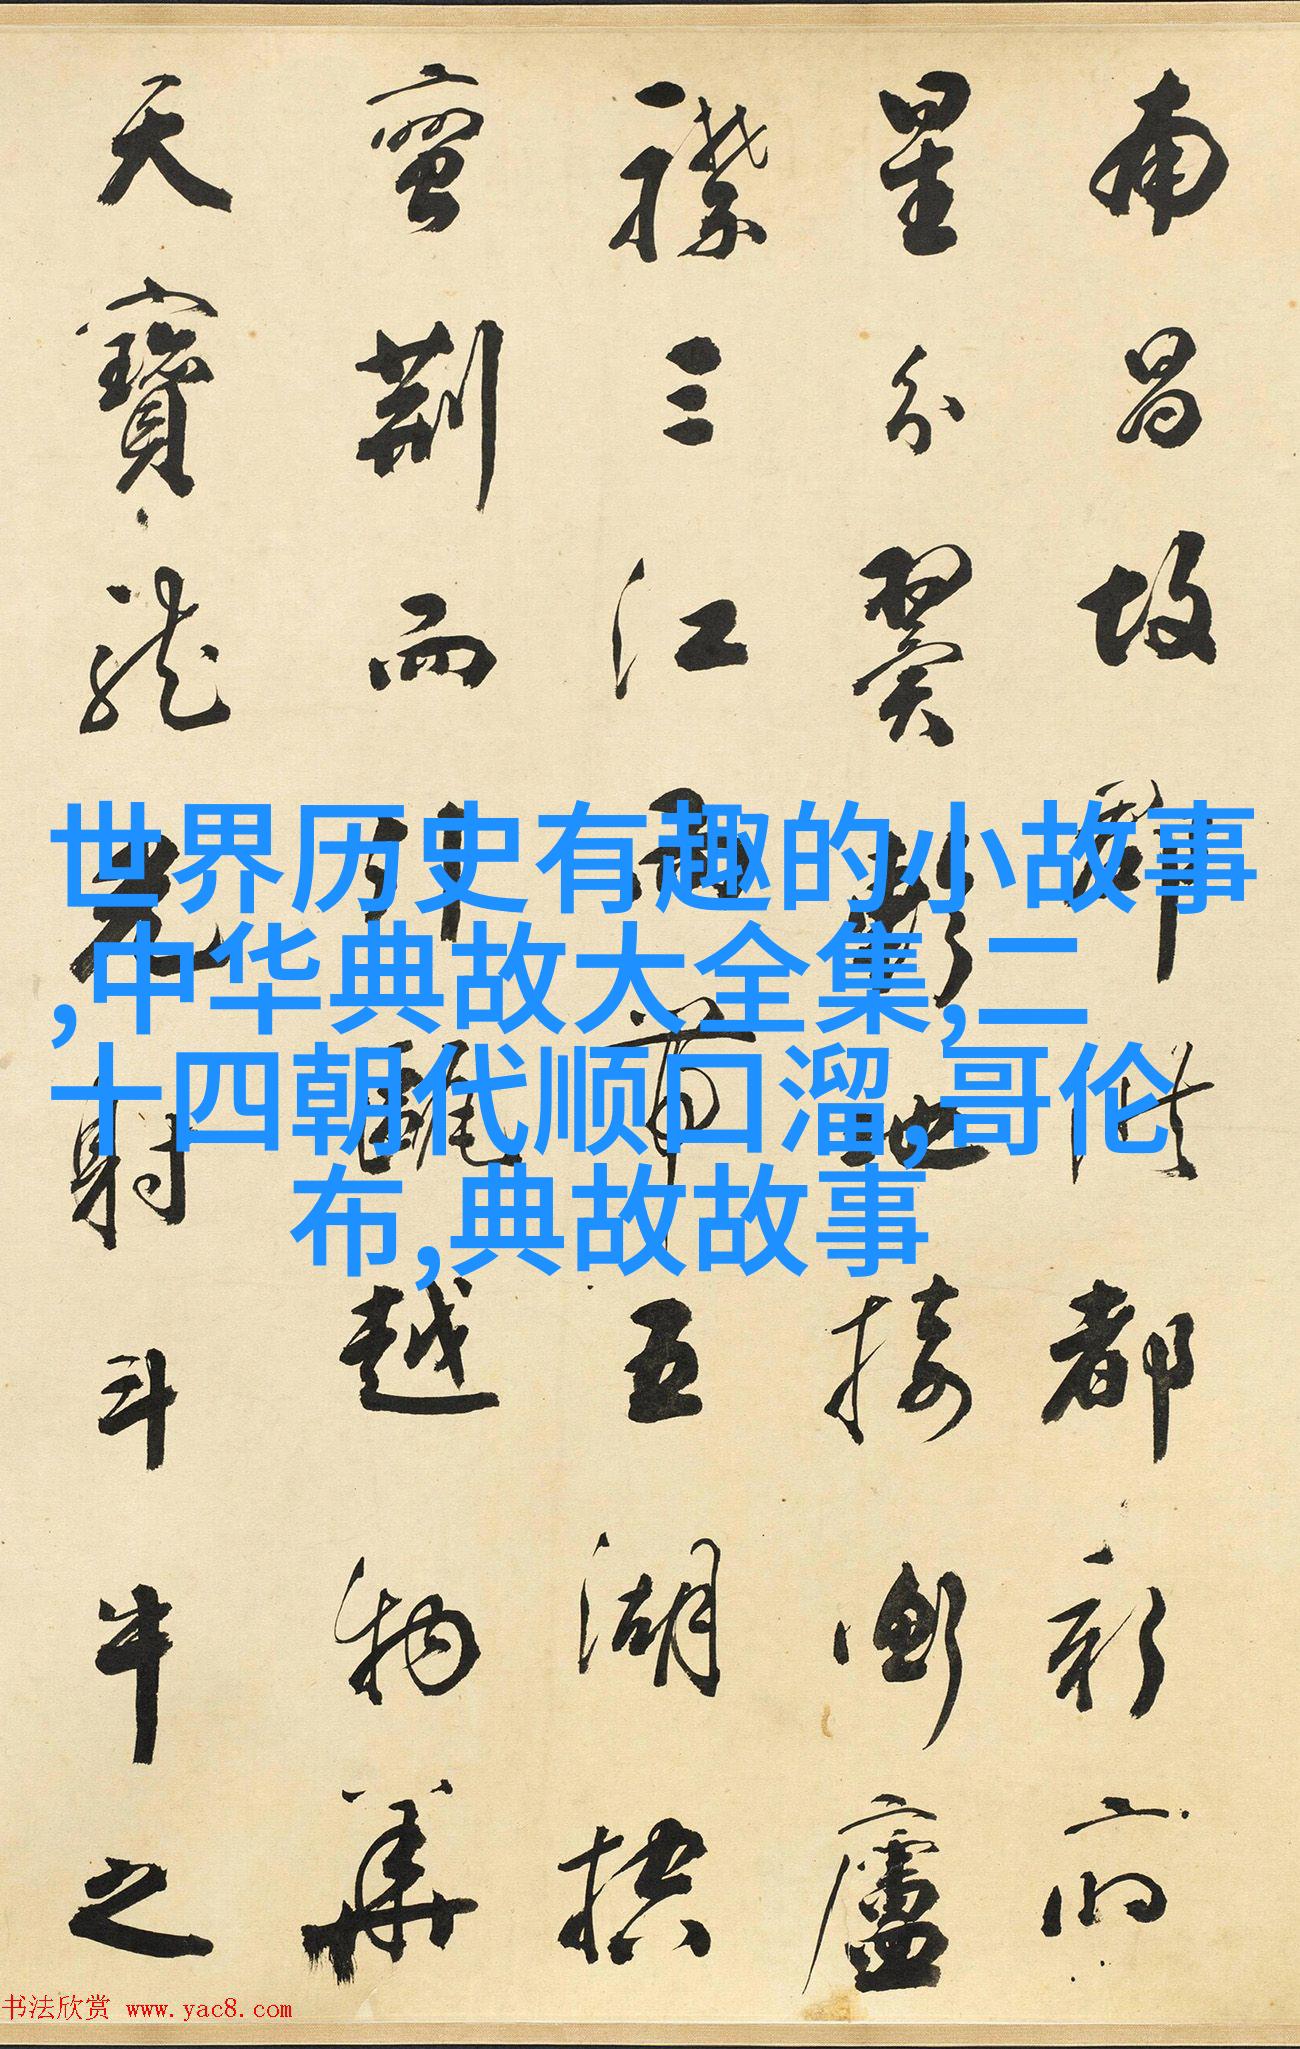 南昌故郡洪都新府
星分翼軫地接衡廬
襟三江而帶五湖控
蠻荊而引甌越物華
天寶龍光射斗牛之
世界历史有趣的小故事
,中华典故大全集,二
十四朝代顺口溜,哥伦
布,典故故事
书法欣赏 www.yac8.com